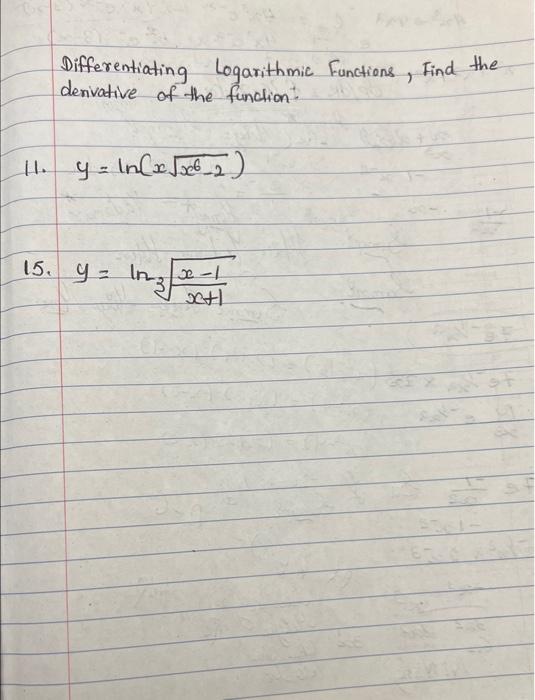 Differentiating Logarithmic Functions, Find the
derivative of the function:
11. y = ln(x√x⁶-2)
15. y = ln ³√x-1/x+1